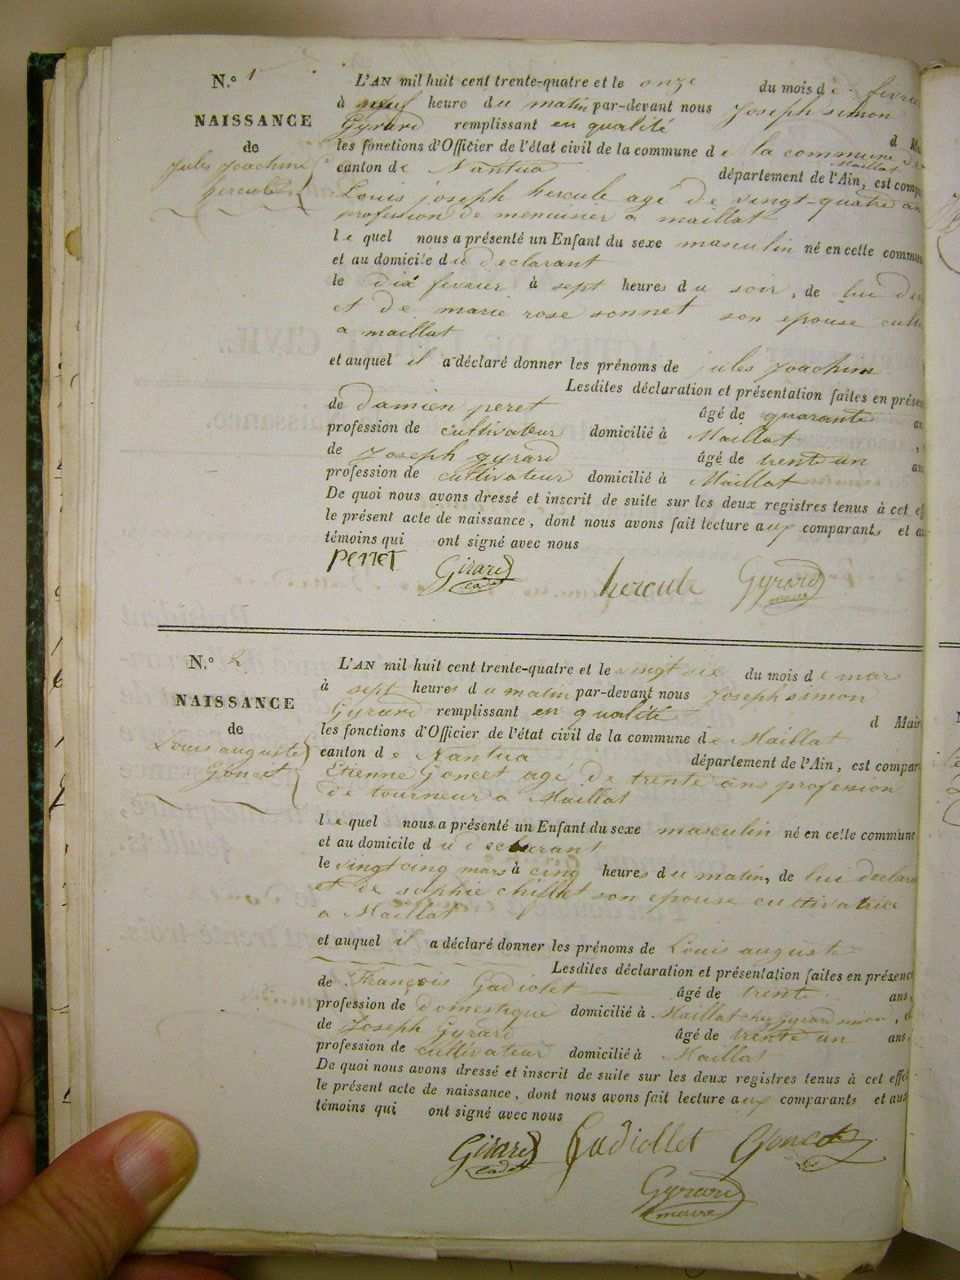 N.° 1
NAISSANCE
de
Jules Joachim
hercule
L'AN mil huit cent trente-quatre et le onze du mois de fevri
à neuf heure du matin par-devant nous Joseph simon
Gyrard remplissant en qualité d Ma
les fonctions d'Officier de l'état civil de la commune de la commune de
Maillat
canton de Nantua département de l'Ain, est comp
Louis joseph hercule agé de vingt-quatre an
profession de menuisier à maillat
le quel nous a présenté un Enfant du sexe masculin né en cette commun
et au domicile du declarant
le dix fevrier à sept heures du soir, de lui de
et de marie rose sonnet son epouse culti
a maillat
et auquel il a déclaré donner les prénoms de jules Joachim
Lesdites déclaration et présentation faites en prése
de Damien peret âgé de quarante an
profession de cultivateur domicilié à Maillat
de Joseph gyrard âgé de trente un an
profession de cultivateur domicilié à Maillat
De quoi nous avons dressé et inscrit de suite sur les deux registres tenus à cet ef
le présent acte de naissance, dont nous avons fait lecture aux comparants et au
témoins qui ont signé avec nous
perret Girard cadet hercule Gyrard maire
N.° 2
NAISSANCE
de
Louis auguste
Goncet
L'AN mil huit cent trente-quatre et le vingt six du mois de mars
à sept heures du matin par-devant nous Joseph simon
Gyrard remplissant en qualité d Mair
les fonctions d'Officier de l'état civil de la commune de Maillat
canton de Nantua département de l'Ain, est compar
Etienne Goncet agé de trente ans profession
de tourneur a Maillat
le quel nous a présenté un Enfant du sexe masculin né en cette commune
et au domicile du declarant
le vingt cinq mars à cinq heures du matin, de lui declara
et de sophie chillat son epouse cultivatrice
a Maillat
et auquel il a déclaré donner les prénoms de Louis auguste
Lesdites déclaration et présentation faites en présenc
de François Gadiolet âgé de trente ans,
profession de domestique domicilié à Maillat chez gyrard
de Joseph Gyrard âgé de trente un ans
profession de cultivateur domicilié à Maillat
De quoi nous avons dressé et inscrit de suite sur les deux registres tenus à cet effe
le présent acte de naissance, dont nous avons fait lecture aux comparants et aux
témoins qui ont signé avec nous
Girard cadet Gadiollet Goncet
Gyrard maire